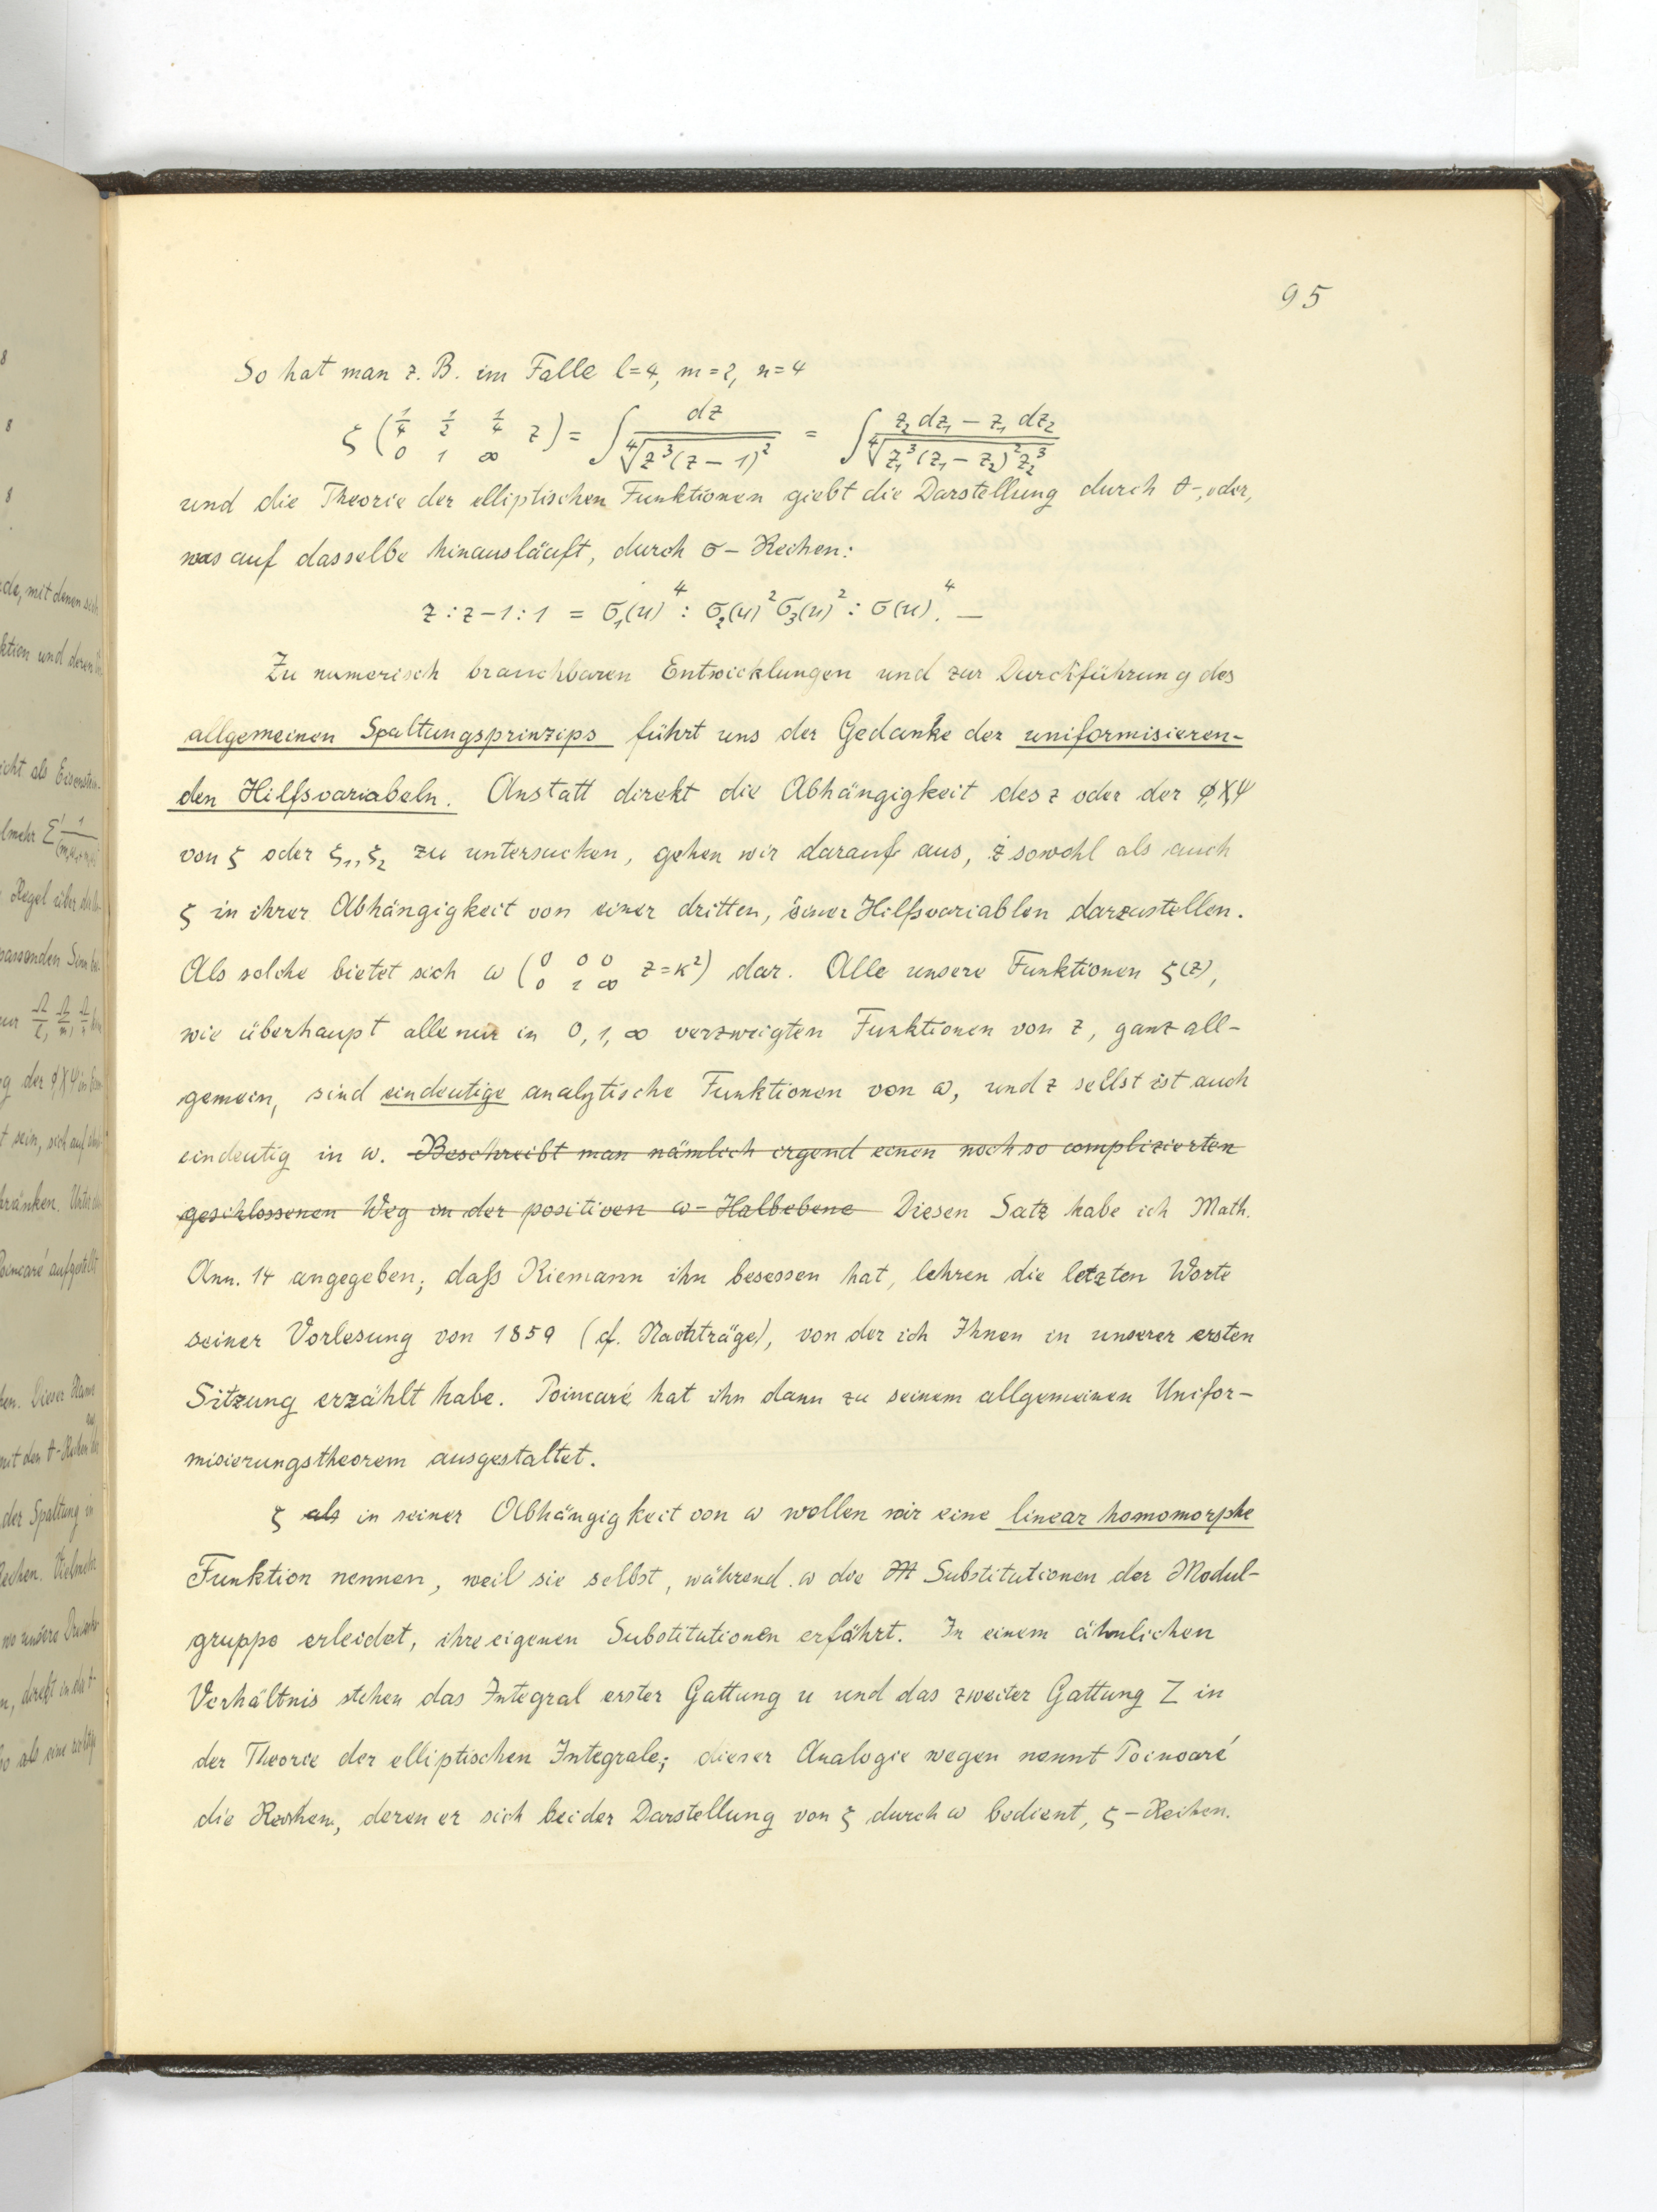 95
So hat man z. B. im Falle l=4, m=2, n=4
ζ (1/4 1/2 1/4 z / 0 1 ∞) = ∫ dz / ∜(z³(z−1)²) = ∫ (z₂ dz₁ − z₁ dz₂) / ∜(z₁³(z₁−z₂)²z₂³)
und die Theorie der elliptischen Funktionen giebt die Darstellung durch ϑ-, oder,
was auf dasselbe hinausläuft, durch σ-Reihen:
z : z−1 : 1 = σ₁(u)⁴ : σ₂(u)²σ₃(u)² : σ(u)⁴. —
Zu numerisch brauchbaren Entwicklungen und zur Durchführung des
allgemeinen Spaltungsprinzips führt uns der Gedanke der uniformisieren-
den Hilfsvariabeln. Anstatt direkt die Abhängigkeit des z oder der φ,χ,ψ
von ζ oder ζ₁, ζ₂ zu untersuchen, gehen wir darauf aus, z sowohl als auch
ζ in ihrer Abhängigkeit von einer dritten, einer Hilfsvariablen darzustellen.
Als solche bietet sich ω (0 0 0 / 0 1 ∞ z=κ²) dar. Alle unsere Funktionen ζ(z),
wie überhaupt alle nur in 0, 1, ∞ verzweigten Funktionen von z, ganz all-
gemein, sind eindeutige analytische Funktionen von ω, und z selbst ist auch
eindeutig in ω. Beschreibt man nämlich irgend einen noch so complizierten
geschlossenen Weg in der positiven ω-Halbebene Diesen Satz habe ich Math.
Ann. 14 angegeben; daß Riemann ihn besessen hat, lehren die letzten Worte
seiner Vorlesung von 1859 (cf. Nachträge), von der ich Ihnen in unserer ersten
Sitzung erzählt habe. Poincaré hat ihn dann zu seinem allgemeinen Unifor-
misierungstheorem ausgestaltet.
ζ als in seiner Abhängigkeit von ω wollen wir eine linear homomorphe
Funktion nennen, weil sie selbst, während ω die M Substitutionen der Modul-
gruppe erleidet, ihre eigenen Substitutionen erfährt. In einem ähnlichen
Verhältnis stehen das Integral erster Gattung u und das zweiter Gattung Z in
der Theorie der elliptischen Integrale; dieser Analogie wegen nennt Poincaré
die Reihen, deren er sich bei der Darstellung von ζ durch ω bedient, ζ-Reihen.